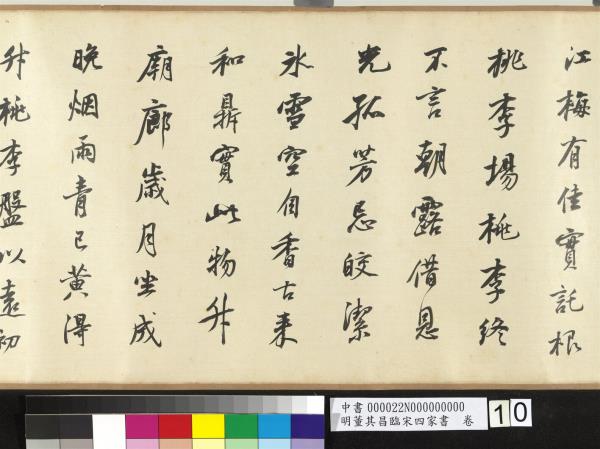 江梅有佳實託根
桃李場桃李終
不言朝露借恩
光孤芳忌皎潔
冰雪空自香古來
和鼎實此物升
廟廊歲月坐成
晚烟雨青已黃得
升桃李盤以遠初
中書 000022N000000000
明董其昌臨宋四家書 卷
10